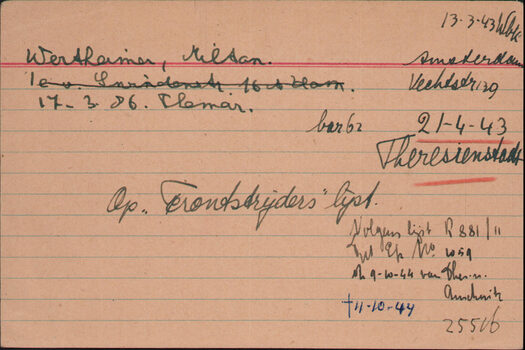 13-3-43 Wbk
Wertheimer, Milton.
Amsterdam
1e v. Swindenstr 16 A'dam.
Vechtstr 129
17-3 86. Themar.
bar 62
21-4-43
Theresienstadt
Op „Frontstrijders" lijst.
Volgens lijst R 881/11
Trt Ep No 1059
dd 9-10-44 van Ther. n.
Auschwitz
†11-10-44
25516